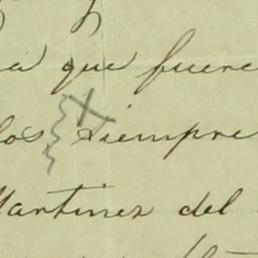 a que fuere
los siempre
Martinez del